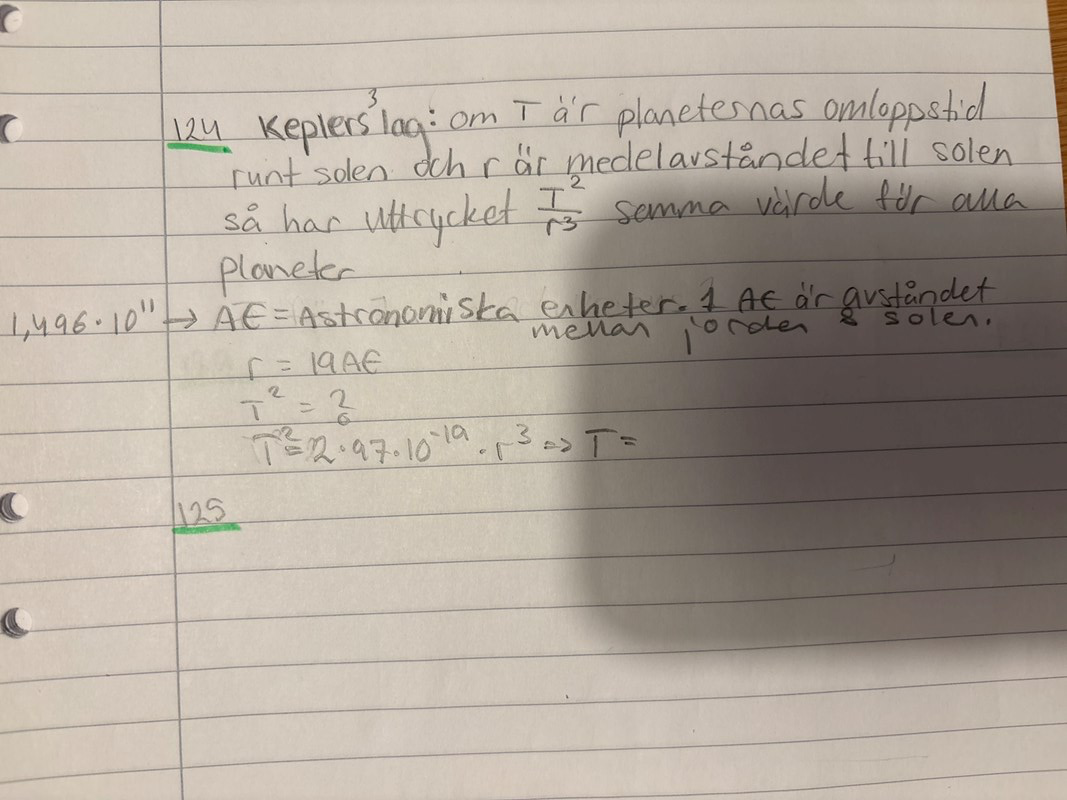 124 Keplers 3 lag: om T är planeternas omloppstid
runt solen och r är medelavståndet till solen
så har uttrycket T²/r³ samma värde för alla
planeter
1,496·10¹¹ → AE = Astronomiska enheter. 1 AE är avståndet
mellan jorden & solen.
r = 19AE
T² = 2
T² = 2·97·10⁻¹⁹·r³ => T =
125